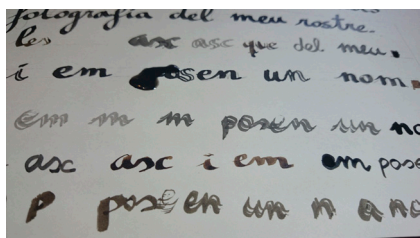 fotografia del meu rostre.
les asc asc que del meu.
i em posen un nom.
Em m m posen un no
asc asc i em em pose
p posen en un n anc